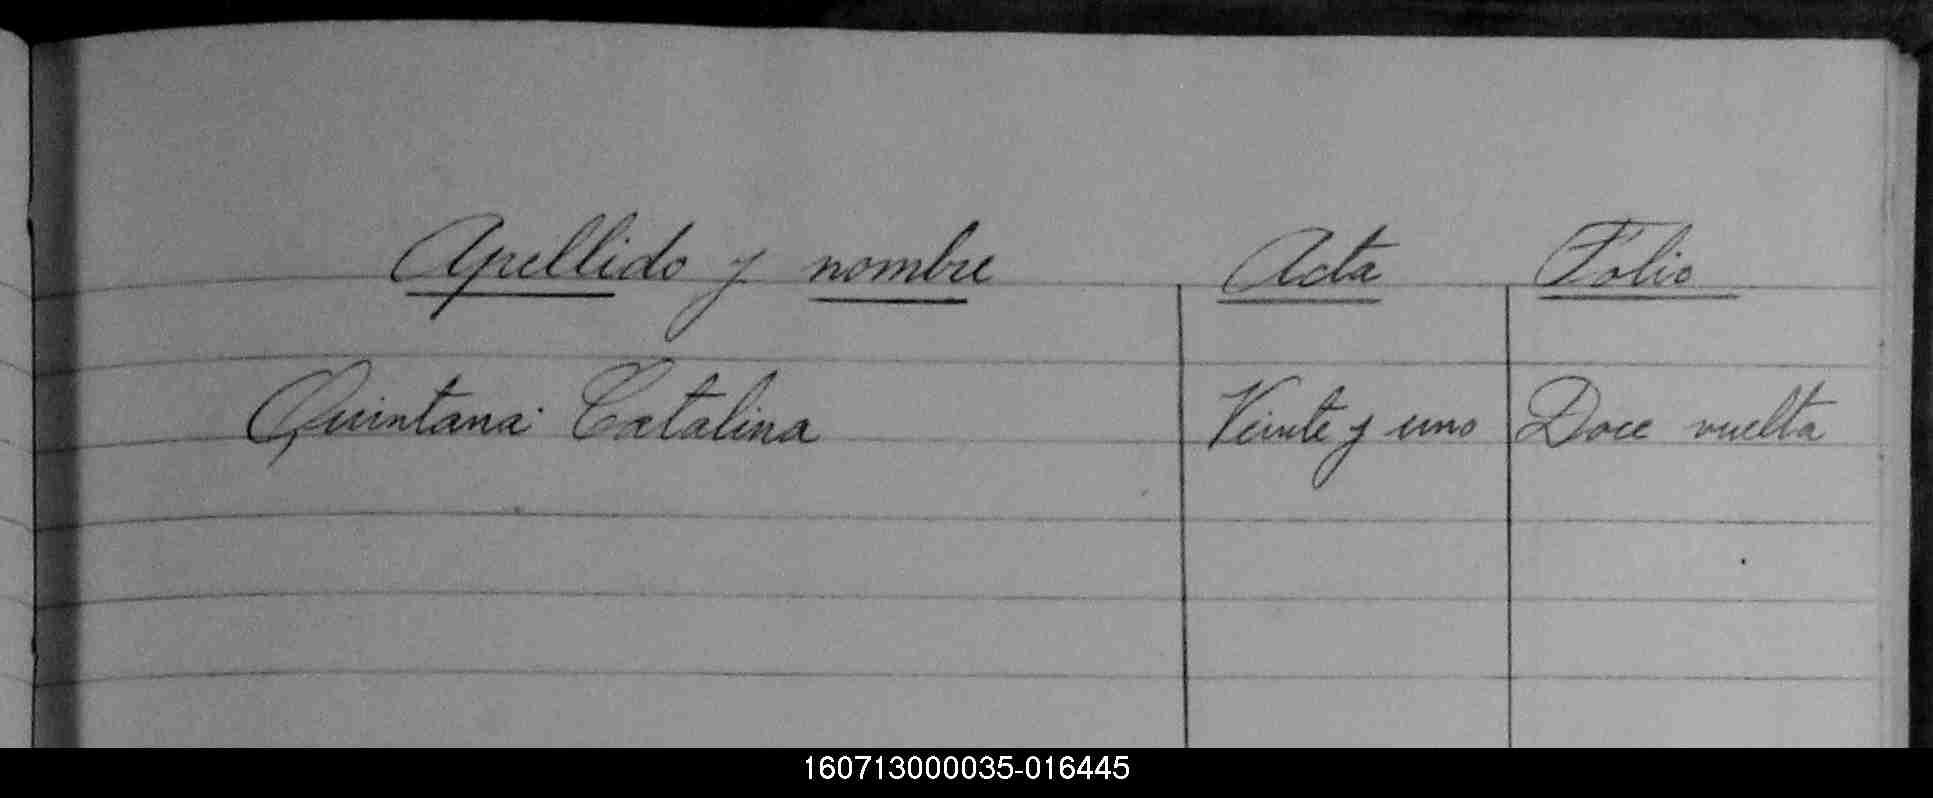 Apellido y nombre Acta Folio
Quintana Catalina Veinte y uno Doce vuelta
160713000035-016445